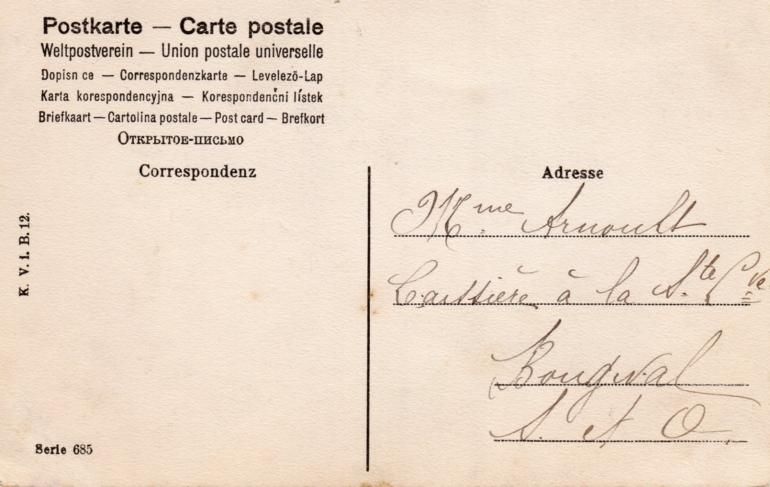 Postkarte — Carte postale
Weltpostverein — Union postale universelle
Dopisn ce — Correspondenzkarte — Levelező-Lap
Karta korespondencyjna — Korespondenční lístek
Briefkaart — Cartolina postale — Post card — Brefkort
Открытое-письмо
Correspondenz
Adresse
K. V. i. B. 12.
Mme. Arnoult
Caissière à la Ste Cve
Bougival
S. et O.
Serie 685